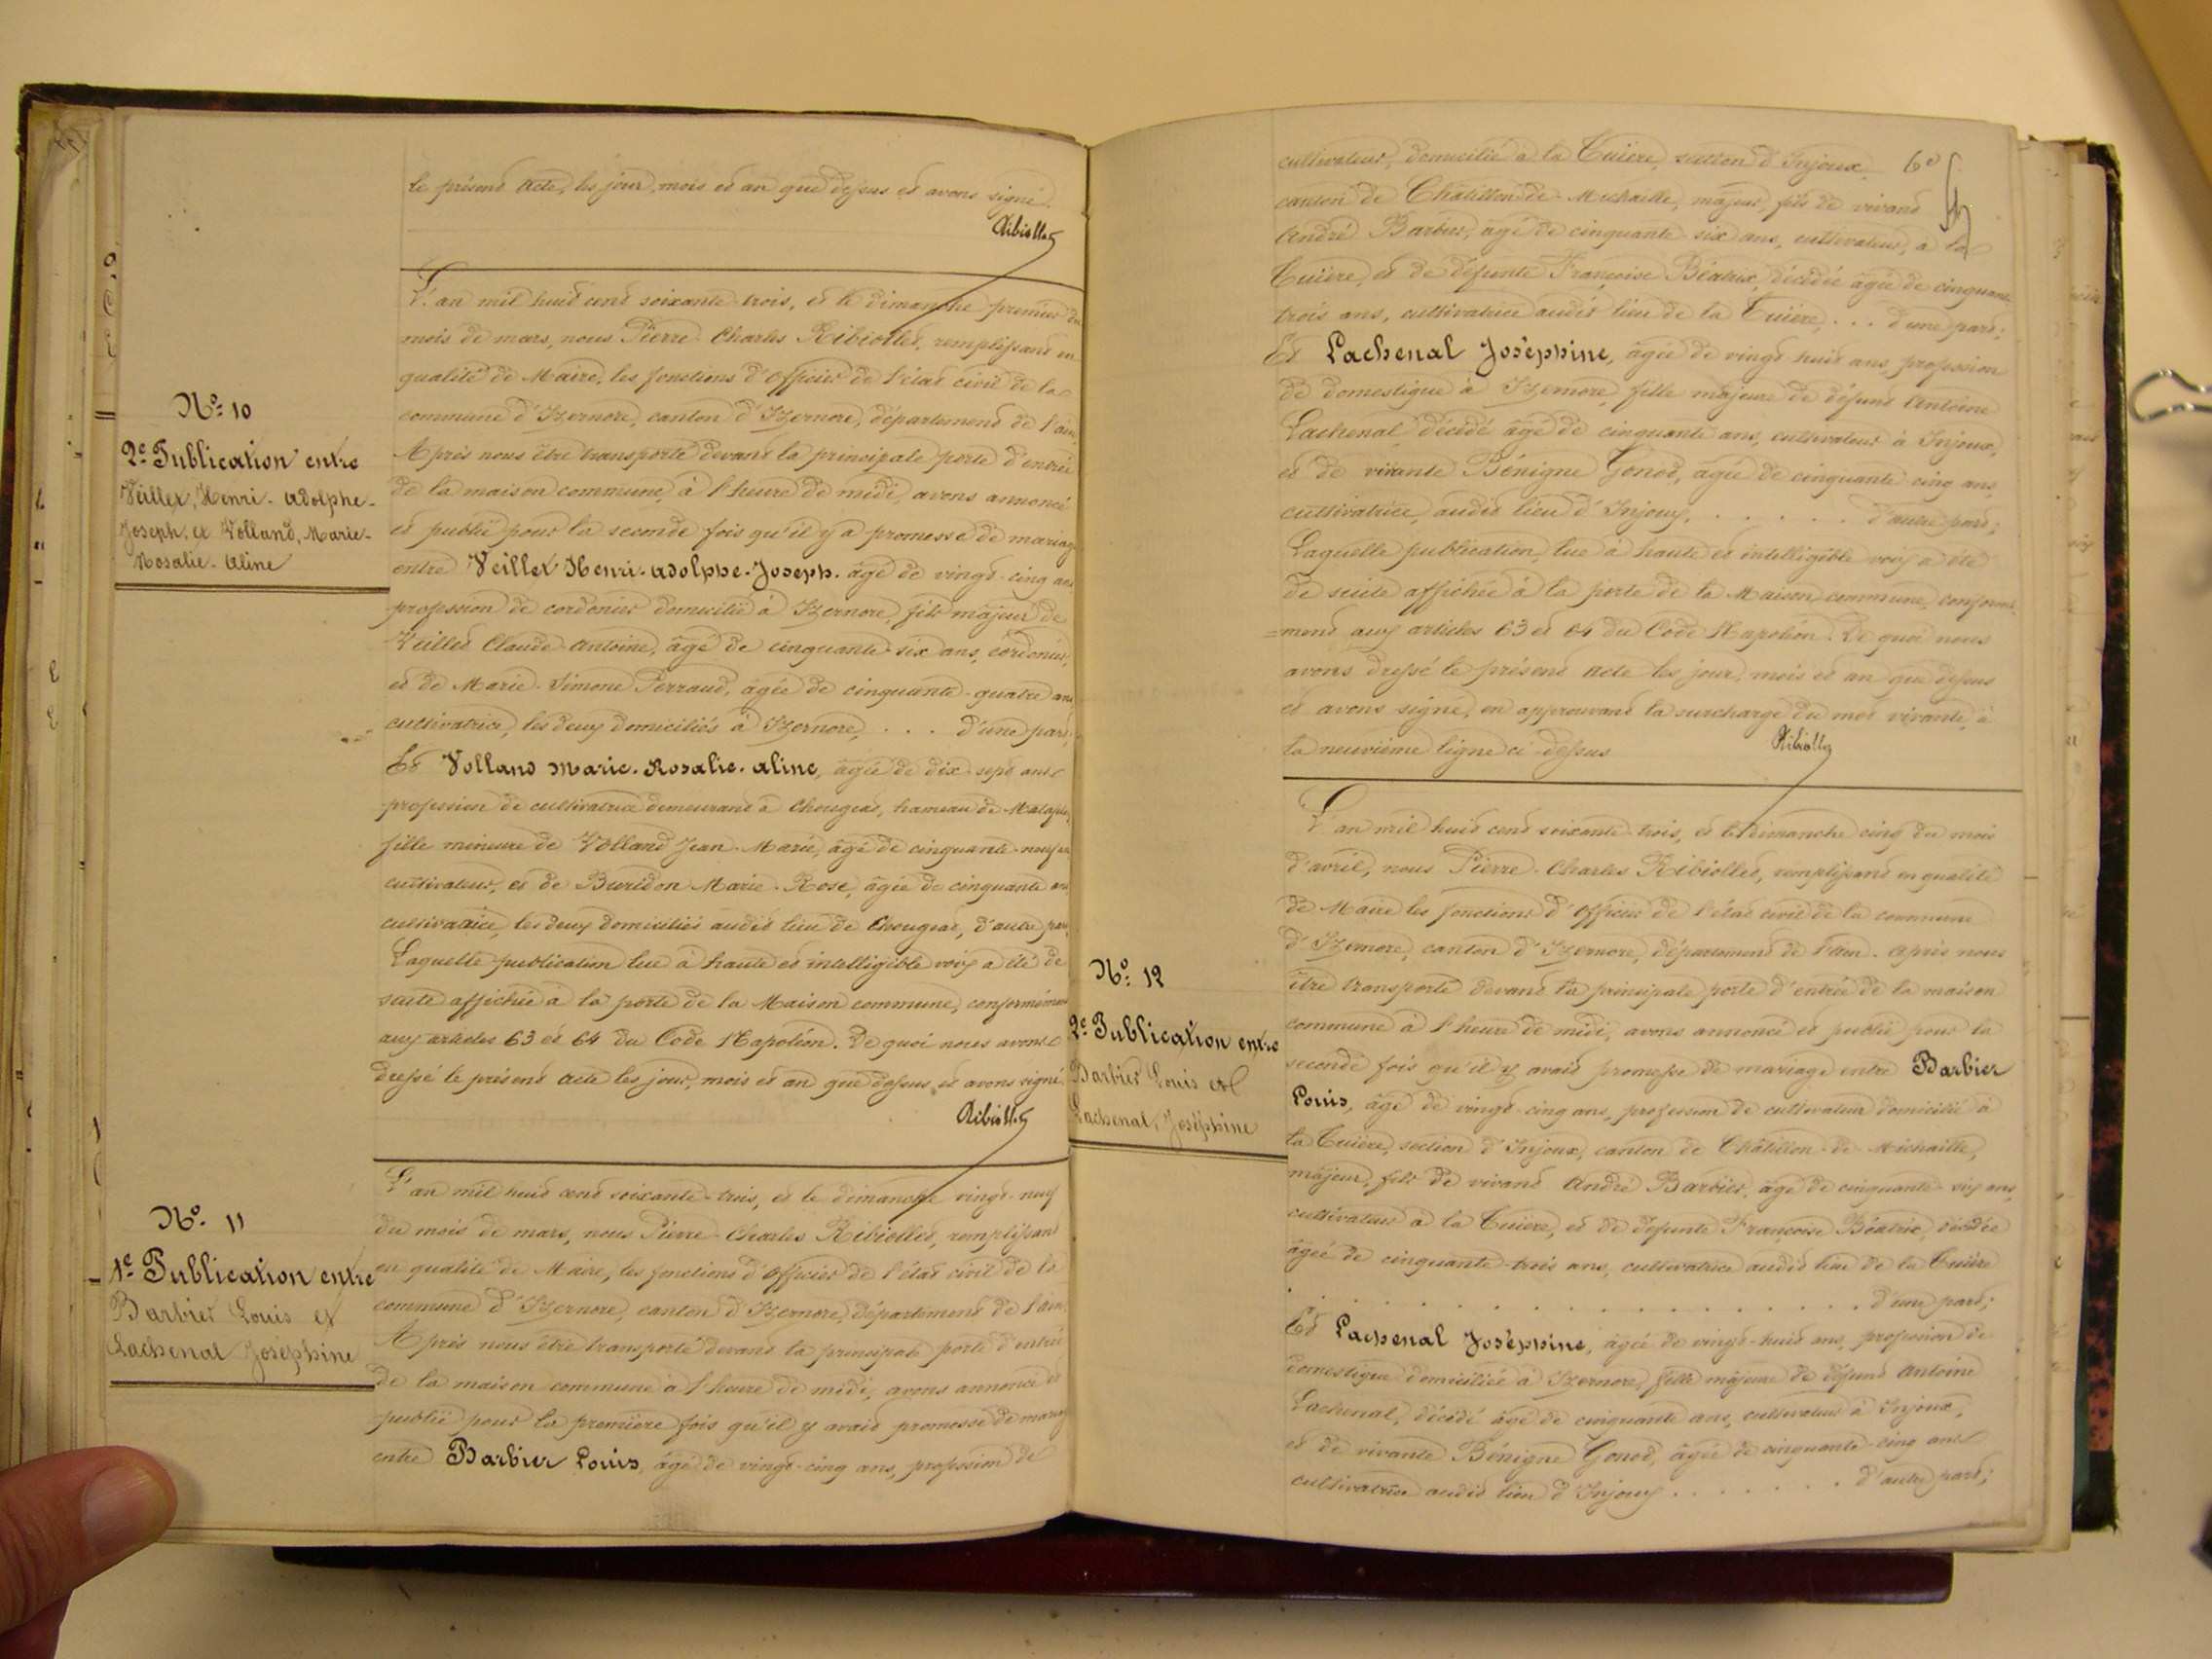 le présent acte, les jour, mois et an que dessus et avons signé.
Ribiollet
N°. 10
2e Publication entre
Veillet, Henri-Adolphe-
Joseph, et Volland, Marie-
Rosalie-Aline
L'an mil huit cent soixante-trois, et le dimanche premier du
mois de mars, nous Pierre Charles Ribiollet, remplissant en
qualité de Maire, les fonctions d'officier de l'état civil de la
commune d'Izernore, canton d'Izernore, département de l'ain.
Après nous être transporté devant la principale porte d'entrée
de la maison commune, à l'heure de midi, avons annoncé
et publié pour la seconde fois qu'il y a promesse de mariage
entre Veillet Henri-Adolphe-Joseph, âgé de vingt-cinq ans
profession de cordonier domicilié à Izernore, fils majeur de
Veillet Claude-Antoine, âgé de cinquante-six ans, cordonier,
et de Marie-Simone Perraud, âgée de cinquante-quatre ans
cultivatrice, les deux domiciliés à Izernore, . . . d'une part,
Et Volland Marie-Rosalie-Aline, âgée de dix-sept ans
profession de cultivatrice demeurant à Chougeat, hameau de
fille mineure de Volland Jean-Marie, âgé de cinquante-neuf ans
cultivateur, et de Buridon Marie-Rose, âgée de cinquante ans
cultivatrice, les deux domiciliés audit lieu de Chougeat, d'autre part,
Laquelle publication lue à haute et intelligible voix a été de
suite affichée à la porte de la Maison commune, conformément
aux articles 63 et 64 du Code Napoléon. De quoi nous avons
dressé le présent acte les jour, mois et an que dessus et avons signé.
Ribiollet
N°. 11
1e Publication entre
Barbier Louis et
Lachenal Joséphine
L'an mil huit cent soixante-trois, et le dimanche vingt-neuf
du mois de mars, nous Pierre-Charles Ribiollet, remplissant
en qualité de Maire, les fonctions d'officier de l'état civil de la
commune d'Izernore, canton d'Izernore, département de l'ain.
Après nous être transporté devant la principale porte d'entrée
de la maison commune à l'heure de midi, avons annoncé et
publié pour la première fois qu'il y avait promesse de mariage
entre Barbier Louis, âgé de vingt-cinq ans, profession de
cultivateur, domicilié à la Tuière, section d'Injoux,
canton de Châtillon-de-Michaille, majeur, fils de vivant
André Barbier, âgé de cinquante-six ans, cultivateur, à la
Tuière, et de défunte Françoise Béatrix, décédée âgée de cinquante
trois ans, cultivatrice audit lieu de la Tuière, . . . d'une part;
Et Lachenal Joséphine, âgée de vingt-huit ans, profession
de domestique à Izernore, fille majeure de défunt Antoine
Lachenal décédé âgé de cinquante ans, cultivateur à Injoux,
et de vivante Bénigne Gonod, âgée de cinquante cinq ans,
cultivatrice, audit lieu d'Injoux, . . . . . . d'autre part;
Laquelle publication, lue à haute et intelligible voix a été
de suite affichée à la porte de la Maison commune, conformé-
=ment aux articles 63 et 64 du Code Napoléon. De quoi nous
avons dressé le présent acte les jour, mois et an que dessus
et avons signé, en approuvant la surcharge du mot vivante, à
la neuvième ligne ci-dessus
Ribiollet
N°. 12
2e Publication entre
Barbier Louis et
Lachenal, Joséphine
L'an mil huit cent soixante-trois, et le dimanche cinq du mois
d'avril, nous Pierre-Charles Ribiollet, remplissant en qualité
de Maire les fonctions d'officier de l'état civil de la commune
d'Izernore, canton d'Izernore, département de l'ain. Après nous
être transporté devant la principale porte d'entrée de la maison
commune à l'heure de midi, avons annoncé et publié pour la
seconde fois qu'il y avait promesse de mariage entre Barbier
Louis, âgé de vingt-cinq ans, profession de cultivateur domicilié à
la Tuière, section d'Injoux, canton de Châtillon-de-Michaille,
majeur, fils de vivant André Barbier, âgé de cinquante-six ans,
cultivateur à la Tuière, et de défunte Françoise Béatrix, décédée
âgée de cinquante-trois ans, cultivatrice audit lieu de la Tuière
. . . . . . . . . . . . . . . . . . d'une part;
Et Lachenal Joséphine, âgée de vingt-huit ans, profession de
domestique domiciliée à Izernore, fille majeure de défunt Antoine
Lachenal, décédé âgé de cinquante ans, cultivateur à Injoux,
et de vivante Bénigne Gonod, âgée de cinquante-cinq ans
cultivatrice audit lieu d'Injoux . . . . . . . d'autre part;